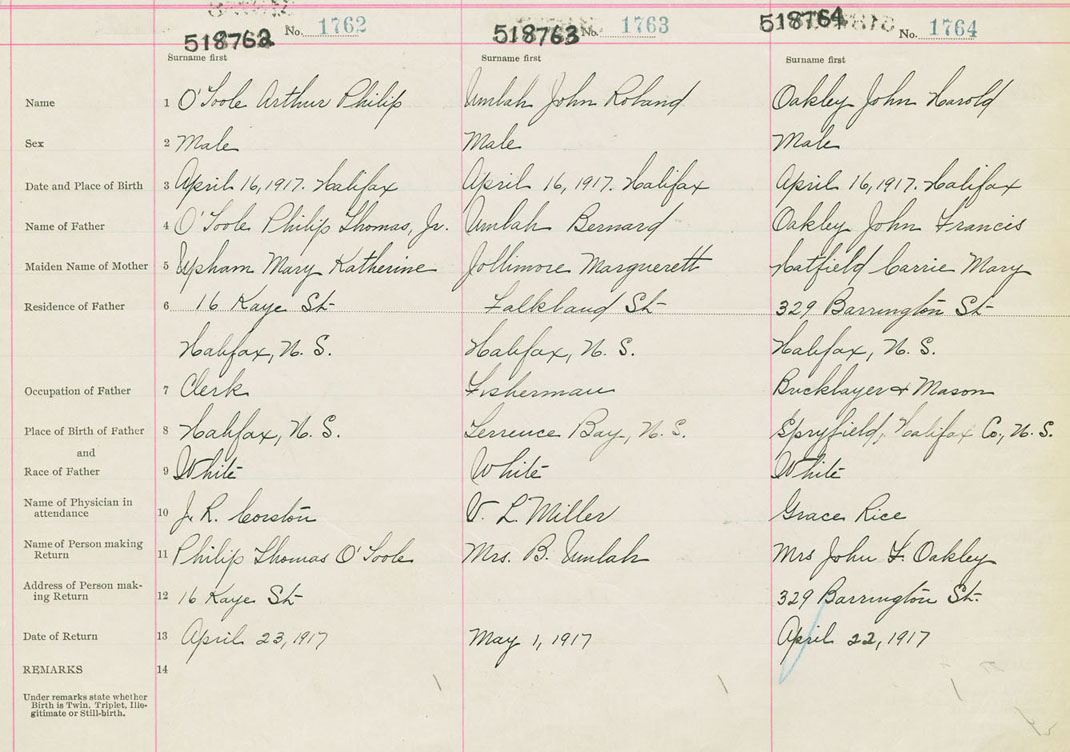 No. 1762 No. 1763 No. 1764
518762 518763 518764
Surname first Surname first Surname first
Name 1 O'Toole Arthur Philip Umlah John Roland Oakley John Harold
Sex 2 Male Male Male
Date and Place of Birth 3 April 16, 1917. Halifax April 16, 1917. Halifax April 16, 1917. Halifax
Name of Father 4 O'Toole Philip Thomas, Jr. Umlah Bernard Oakley John Francis
Maiden Name of Mother 5 Upham Mary Katherine Jollimore Marguerett Hatfield Carrie Mary
Residence of Father 6 16 Kaye St Falkland St 329 Barrington St
Halifax, N. S. Halifax, N. S. Halifax, N. S.
Occupation of Father 7 Clerk Fisherman Bricklayer & Mason
Place of Birth of Father 8 Halifax, N. S. Terrence Bay, N. S. Spryfield, Halifax Co., N. S.
and
Race of Father 9 White White White
Name of Physician in
attendance 10 J. R. Corston V. L. Miller Grace Rice
Name of Person making
Return 11 Philip Thomas O'Toole Mrs. B. Umlah Mrs John F. Oakley
Address of Person mak-
ing Return 12 16 Kaye St 329 Barrington St.
Date of Return 13 April 23, 1917 May 1, 1917 April 22, 1917
REMARKS 14
Under remarks state whether
Birth is Twin, Triplet, Ille-
gitimate or Still-birth.